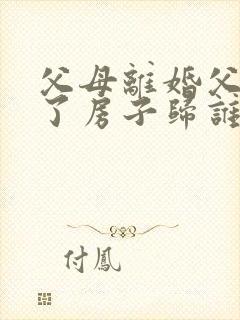 父母離婚父
了房子歸誰
付鳳